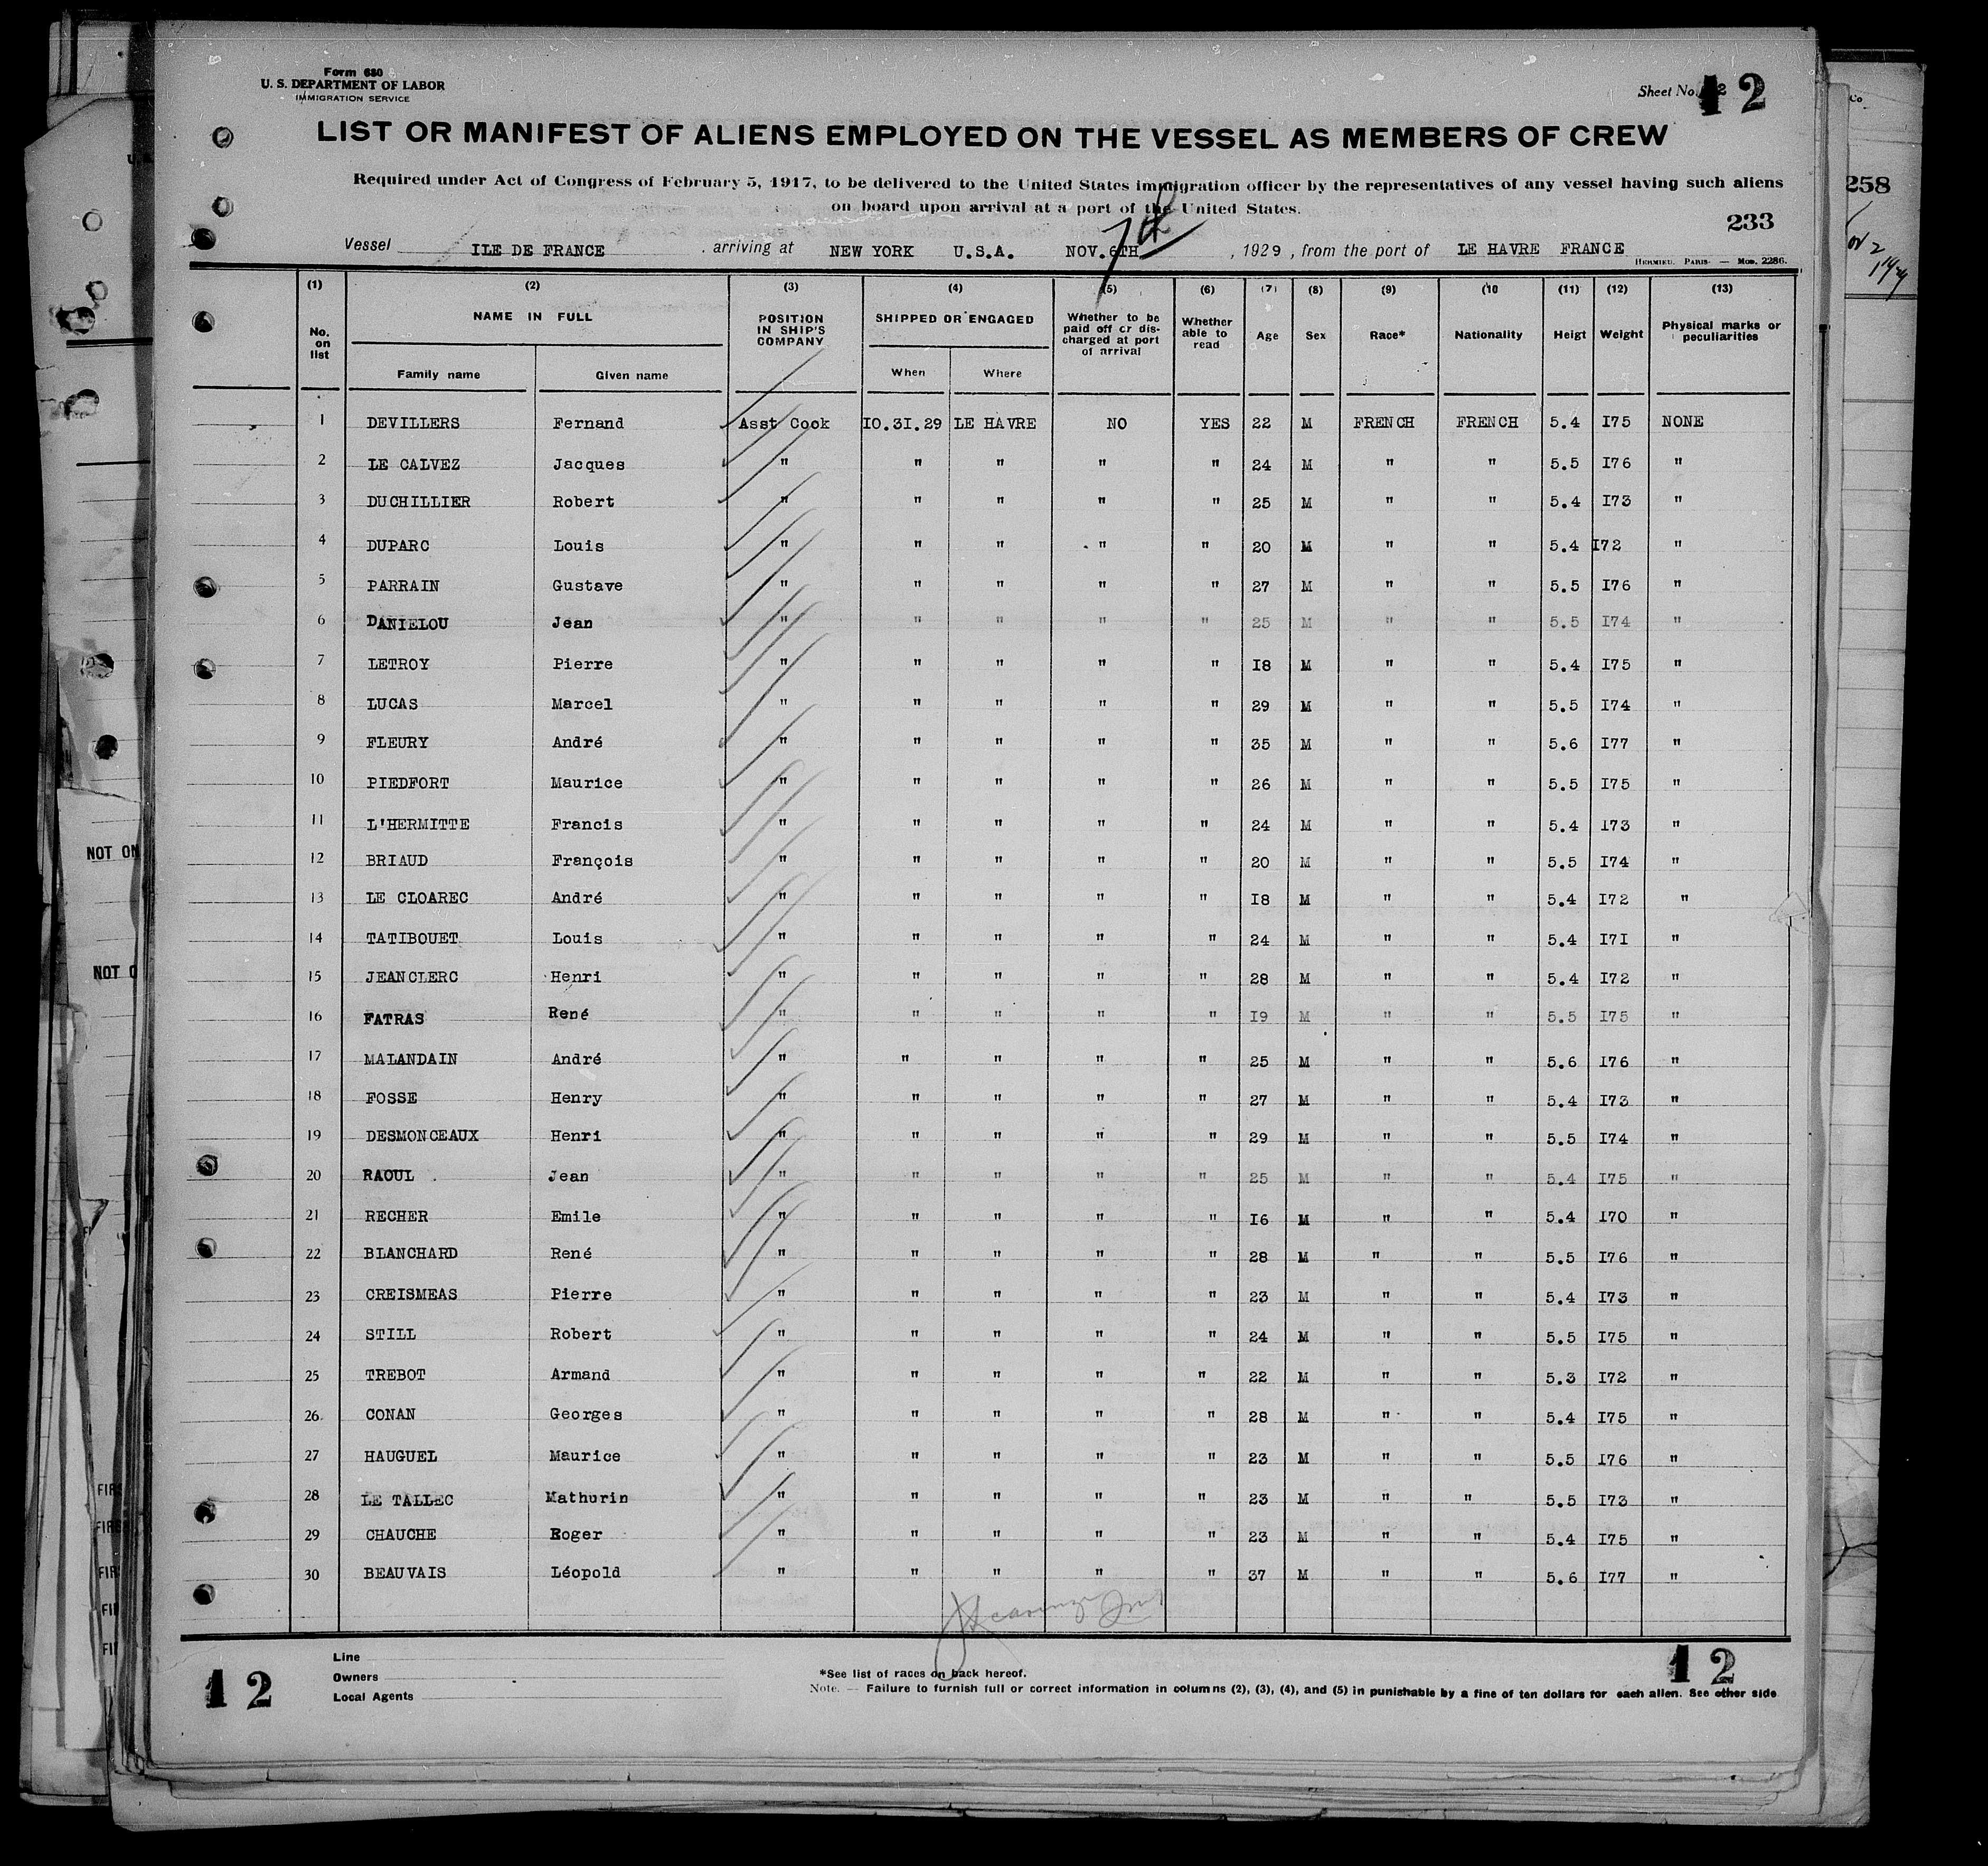 Form 680
U. S. DEPARTMENT OF LABOR
IMMIGRATION SERVICE
Sheet No. 12
LIST OR MANIFEST OF ALIENS EMPLOYED ON THE VESSEL AS MEMBERS OF CREW
Required under Act of Congress of February 5, 1917, to be delivered to the United States immigration officer by the representatives of any vessel having such aliens
on board upon arrival at a port of the United States.
233
Vessel ILE DE FRANCE . arriving at NEW YORK U.S.A. NOV. 6TH , 1929 , from the port of LE HAVRE FRANCE
HERMIEU. PARIS. — MOD. 2286.
(1) (2) (3) (4) (5) (6) (7) (8) (9) (10 (11) (12) (13)
No. on list NAME IN FULL Family name Given name POSITION IN SHIP'S COMPANY SHIPPED OR ENGAGED When Where Whether to be paid off or discharged at port of arrival Whether able to read Age Sex Race* Nationality Heigt Weight Physical marks or peculiarities
1 DEVILLERS Fernand Asst Cook IO.3I.29 LE HAVRE NO YES 22 M FRENCH FRENCH 5.4 I75 NONE
2 LE CALVEZ Jacques " " " " " 24 M " " 5.5 I76 "
3 DUCHILLIER Robert " " " " " 25 M " " 5.4 I73 "
4 DUPARC Louis " " " " " 20 M " " 5.4 I72 "
5 PARRAIN Gustave " " " " " 27 M " " 5.5 I76 "
6 DANIELOU Jean " " " " " 25 M " " 5.5 I74 "
7 LETROY Pierre " " " " " I8 M " " 5.4 I75 "
8 LUCAS Marcel " " " " " 29 M " " 5.5 I74 "
9 FLEURY André " " " " " 35 M " " 5.6 I77 "
10 PIEDFORT Maurice " " " " " 26 M " " 5.5 I75 "
11 L'HERMITTE Francis " " " " " 24 M " " 5.4 I73 "
12 BRIAUD François " " " " " 20 M " " 5.5 I74 "
13 LE CLOAREC André " " " " " I8 M " " 5.4 I72 "
14 TATIBOUET Louis " " " " " 24 M " " 5.4 I7I "
15 JEANCLERC Henri " " " " " 28 M " " 5.4 I72 "
16 FATRAS René " " " " " I9 M " " 5.5 I75 "
17 MALANDAIN André " " " " " 25 M " " 5.6 I76 "
18 FOSSE Henry " " " " " 27 M " " 5.4 I73 "
19 DESMONCEAUX Henri " " " " " 29 M " " 5.5 I74 "
20 RAOUL Jean " " " " " 25 M " " 5.4 I75 "
21 RECHER Emile " " " " " I6 M " " 5.4 I70 "
22 BLANCHARD René " " " " " 28 M " " 5.5 I76 "
23 CREISMEAS Pierre " " " " " 23 M " " 5.4 I73 "
24 STILL Robert " " " " " 24 M " " 5.5 I75 "
25 TREBOT Armand " " " " " 22 M " " 5.3 I72 "
26 CONAN Georges " " " " " 28 M " " 5.4 I75 "
27 HAUGUEL Maurice " " " " " 23 M " " 5.5 I76 "
28 LE TALLEC Mathurin " " " " " 23 M " " 5.5 I73 "
29 CHAUCHE Roger " " " " " 23 M " " 5.4 I75 "
30 BEAUVAIS Léopold " " " " " 37 M " " 5.6 I77 "
Line
Owners
Local Agents
*See list of races on back hereof.
Note. — Failure to furnish full or correct information in columns (2), (3), (4), and (5) in punishable by a fine of ten dollars for each alien. See other side
12
12
258
NOT ON